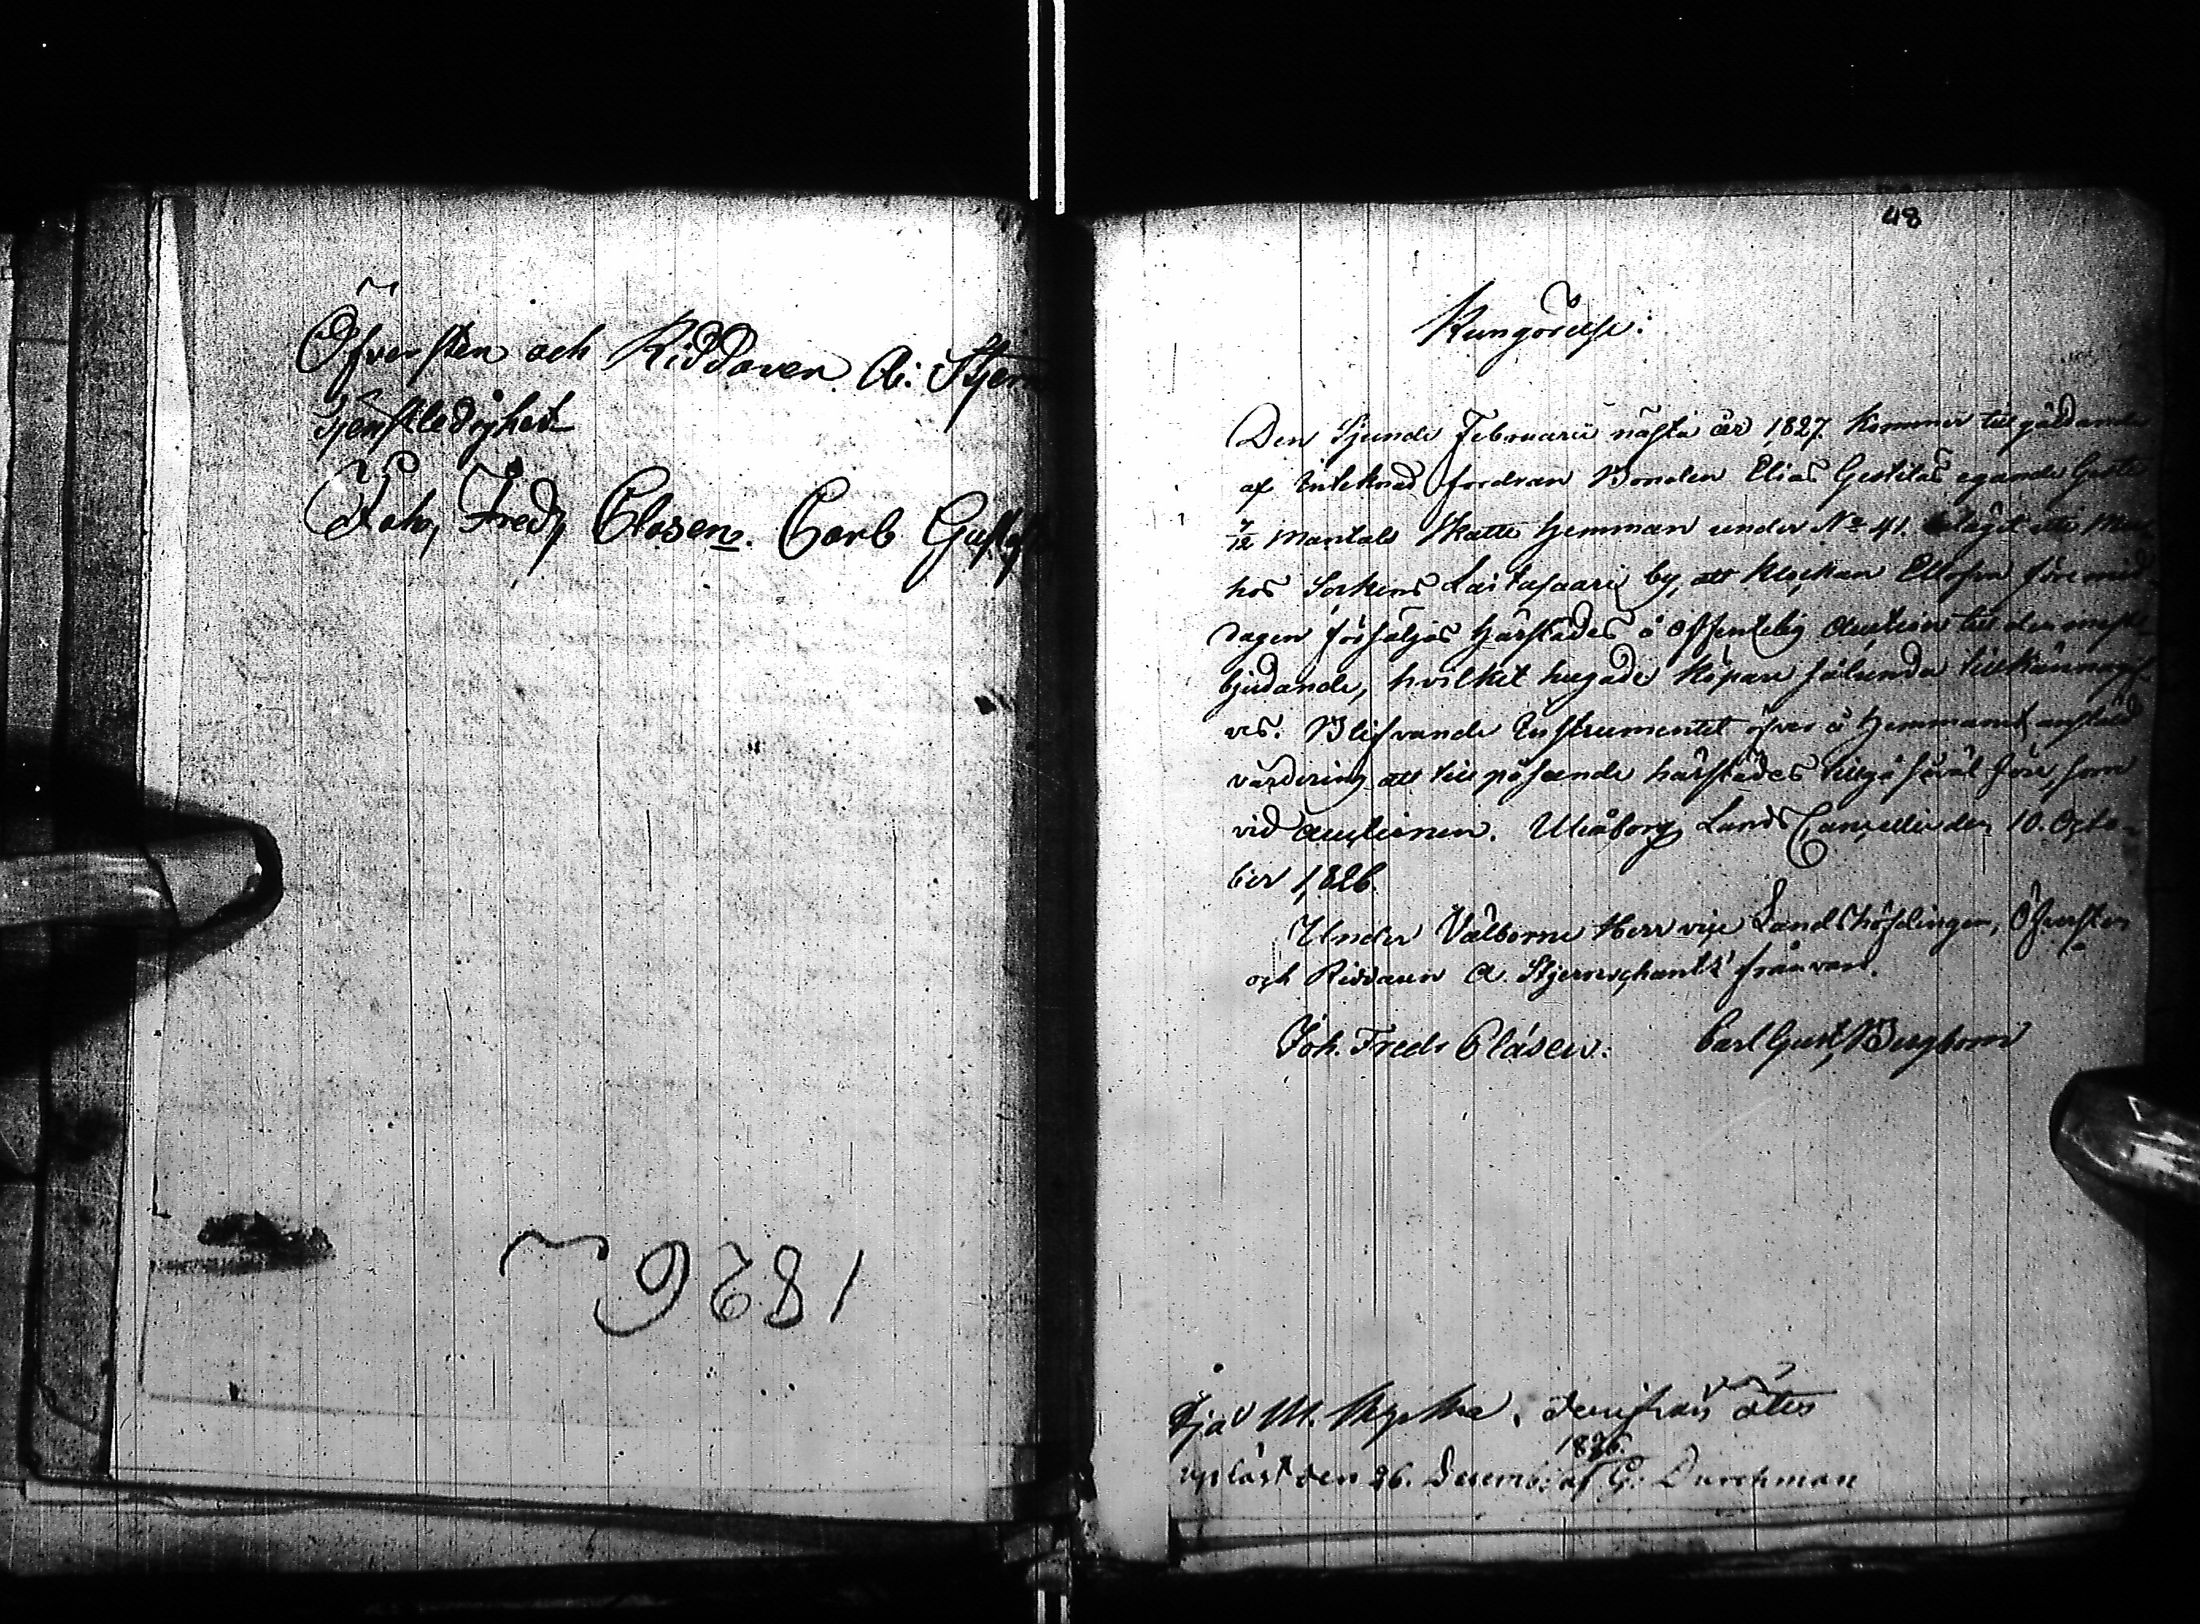 47
Öfversten och Riddaren A: Stjern
tjenstledighet
Joh, Fred, Clasen. Carl Gustaf
1826
48
Kungörelse:
Den Sjunde Februarii nästa år 1827. kommer till gäldande
af inteknad fordran Bonden Elias Gestilas egande
7/12 Mantals Skatte Hemman under No 41. beläget uti
hos Sockens Laitasaari by, att klockan Ellofva föremid-
dagen försäljas härstädes å offentelig Auction till den mest-
bjudande, hvilket hugade köpare sålunda till kännagif-
ves. Blifvande Instrumentet öfver å Hemmanet anstäld
värdering att till påseende härstädes tillgå såväl före, som
vid auctionen. Uleåborg Lands Cancellie den 10. Octo-
ber 1826.
Under Välborne Herr vice Landshöfdingen, Öfversten
och Riddaren A. Stjernschantz' frånvaro.
Joh. Fredr Clasen. Carl Gust, Bergbom
upläst den 26. Decemb: 1826. af G. Durchman